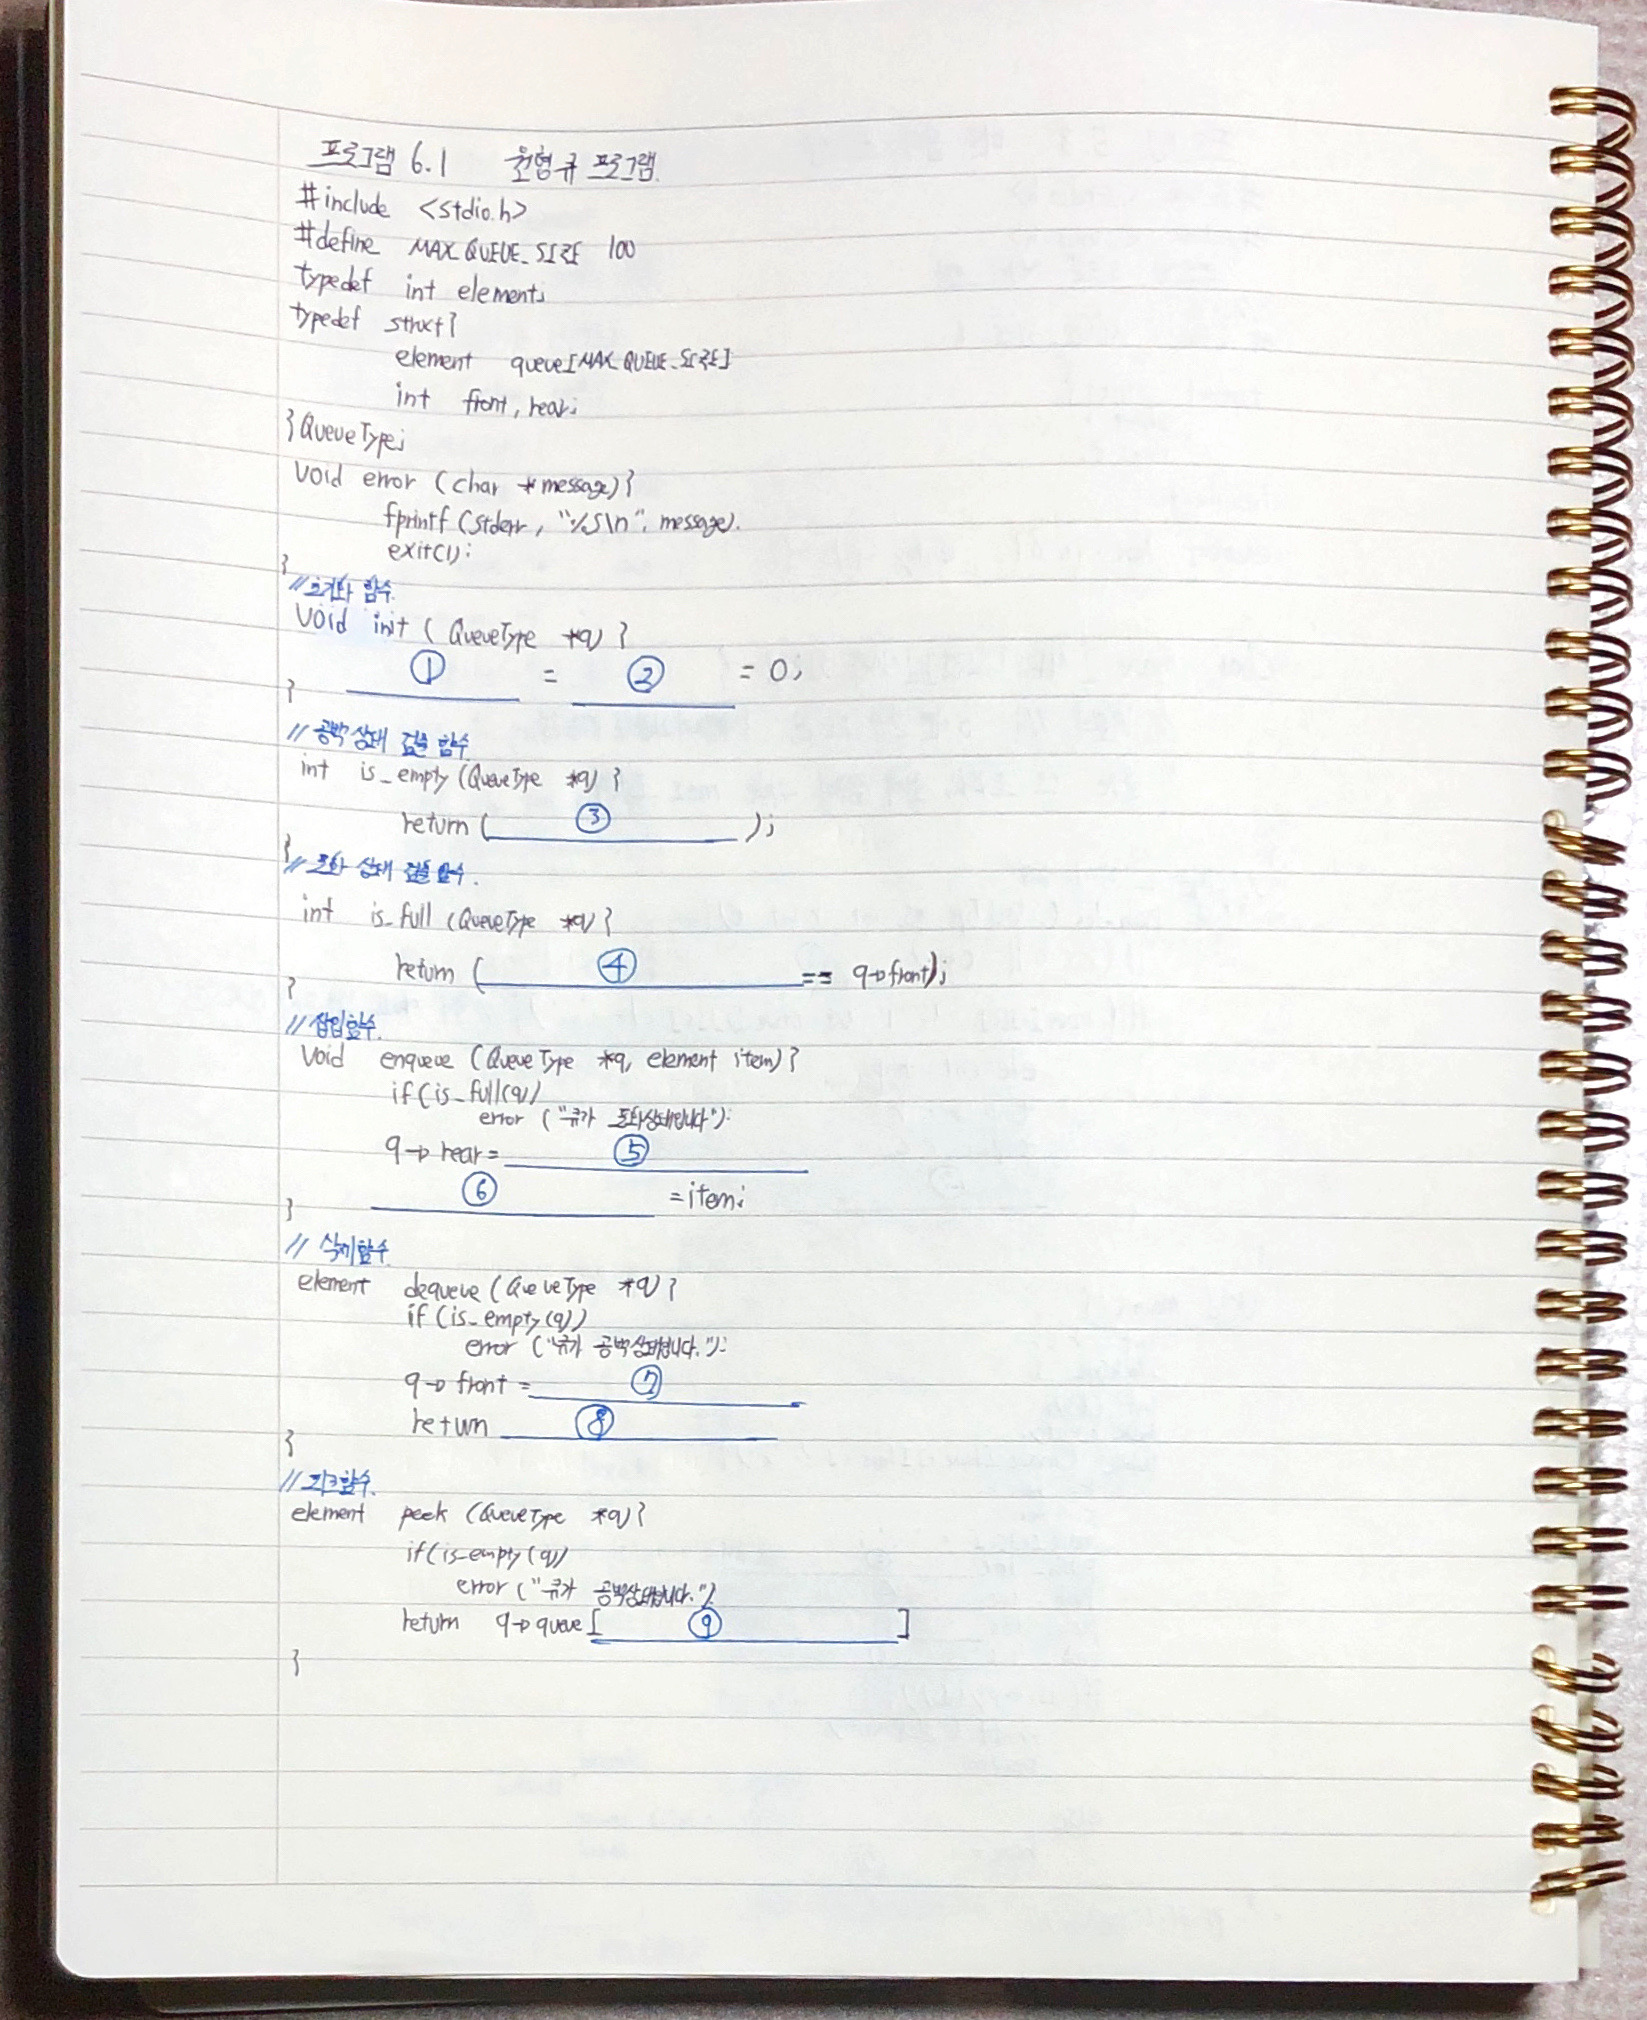 프로그램 6.1 원형큐 프로그램.
#include <stdio.h>
#define MAX_QUEUE_SIZE 100
typedef int element;
typedef struct{
element queue[MAX_QUEUE_SIZE]
int front, rear;
}QueueType;
void error (char *message){
fprintf (stderr, "%s\n", message).
exit(1);
}
//초기화 함수.
void init ( QueueType *q) {
① = ② = 0;
}
// 공백 상태 검출 함수
int is_empty (QueueType *q) {
return ( ③ );
}
// 포화 상태 검출 함수.
int is_full (QueueType *q) {
return ( ④ == q->front);
}
//삽입함수.
void enqueue (QueueType *q, element item){
if(is_full(q)
error ("큐가 포화상태입니다");
q-> rear = ⑤
⑥ = item;
}
// 삭제함수
element dequeue (QueueType *q) {
if (is_empty(q))
error ("큐가 공백상태입니다.");
q-> front = ⑦
return ⑧
}
//피크함수.
element peek (QueueType *q){
if(is_empty(q)
error ("큐가 공백상태입니다.")
return q->queue[ ⑨ ]
}